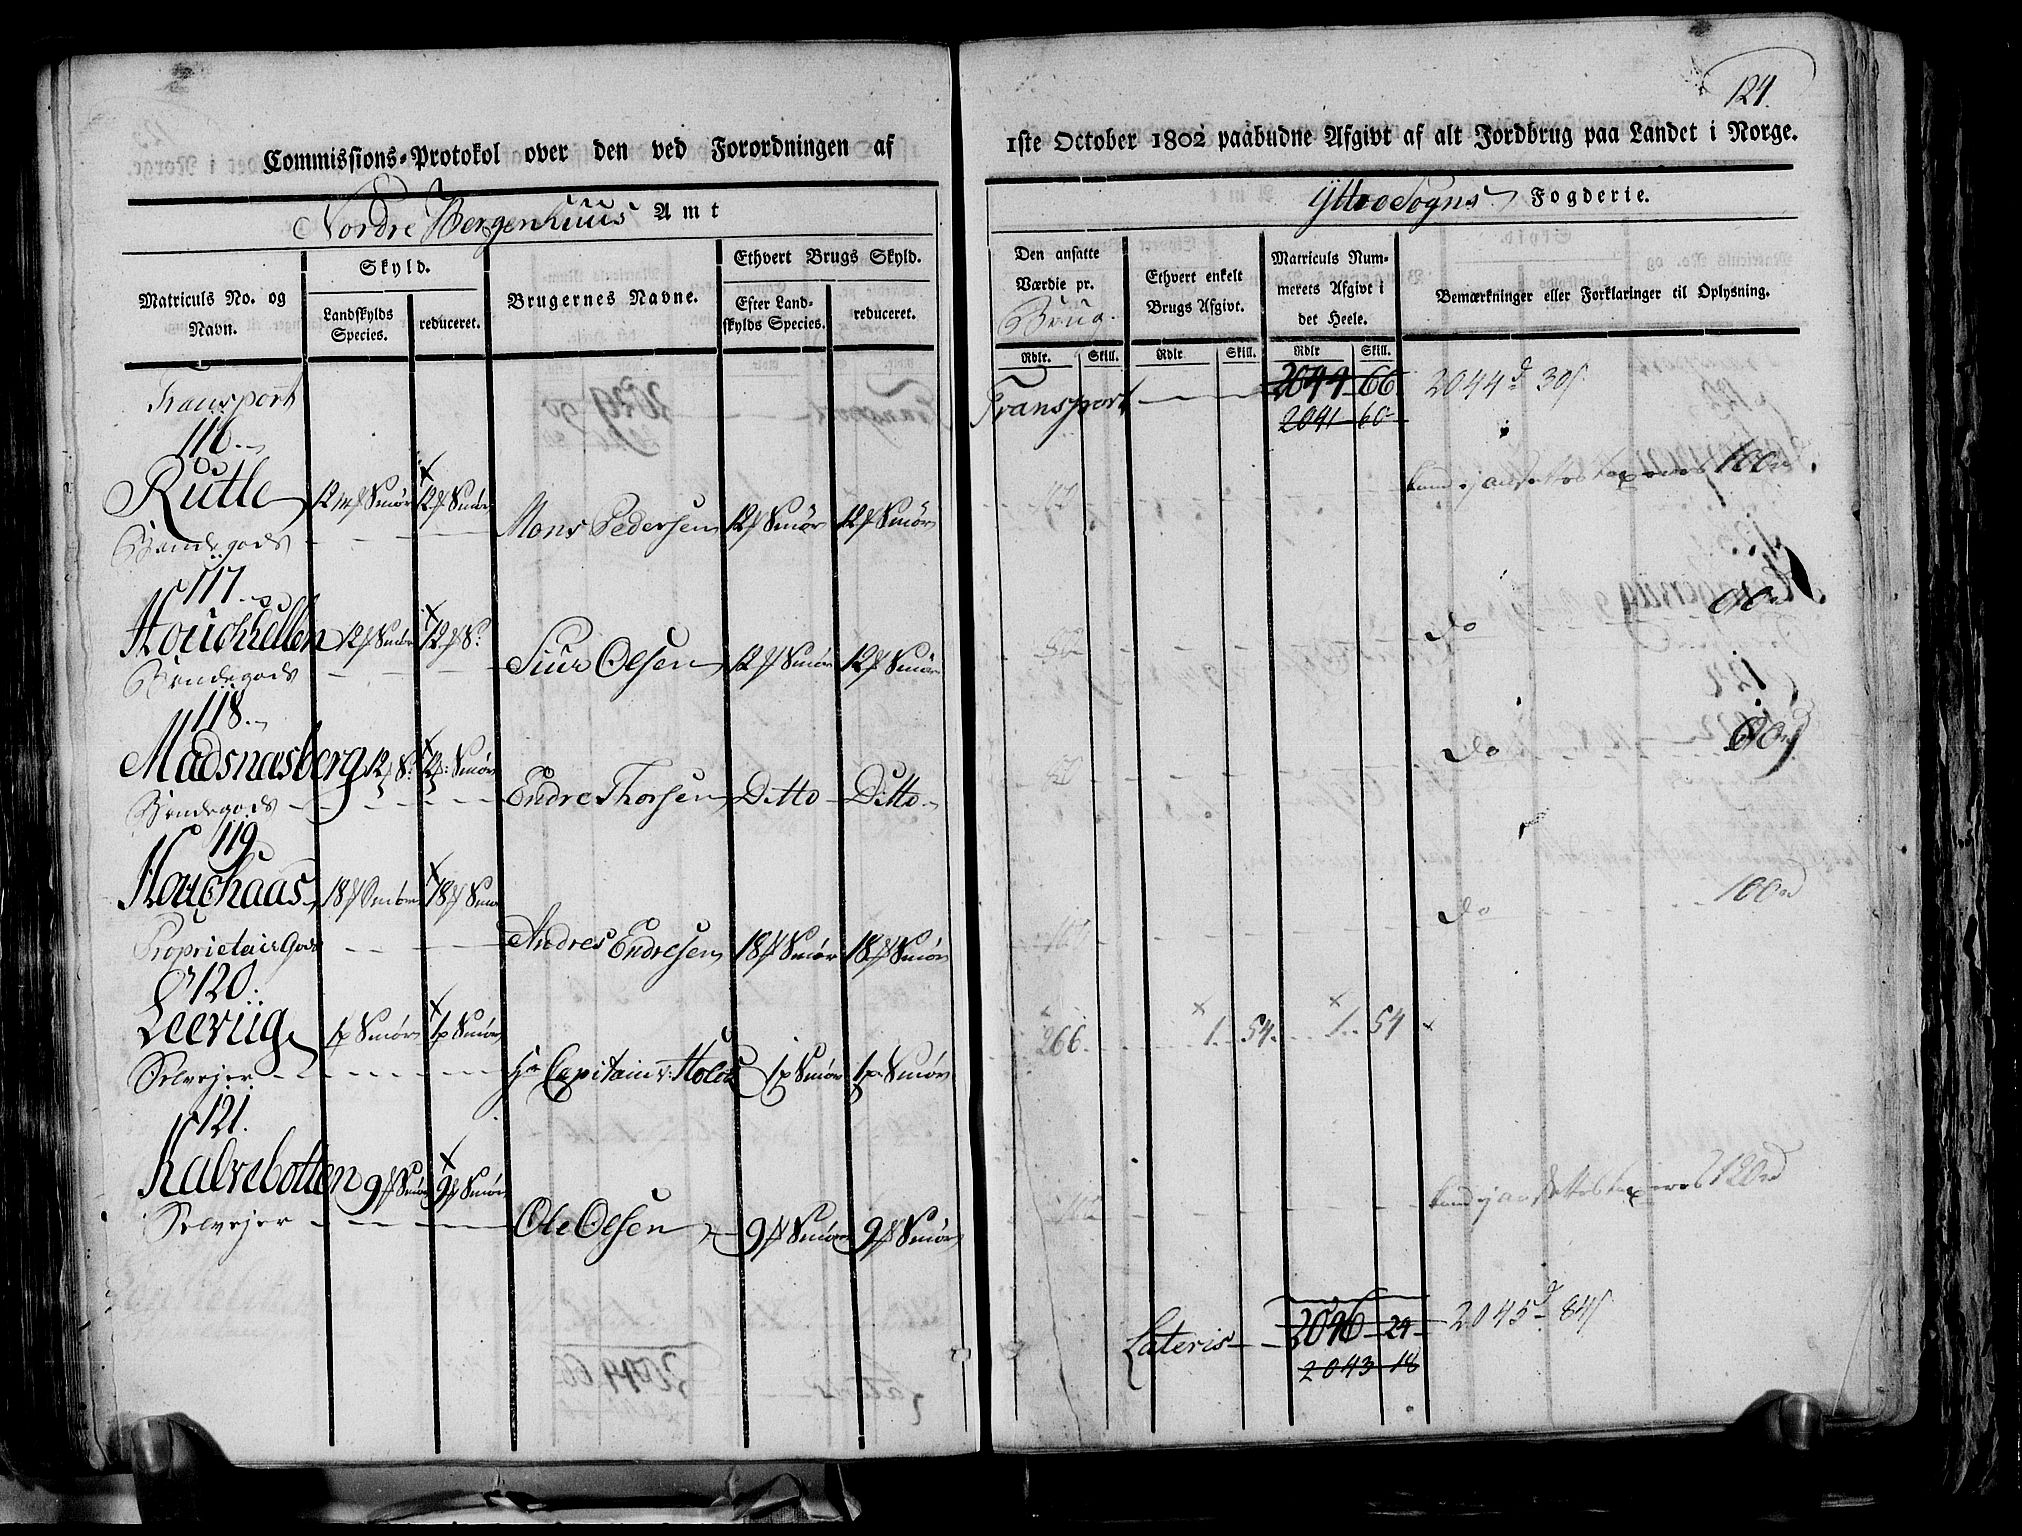 124.
Commissions-Protokol over den ved Forordningen af 1ste October 1802 paabudne Afgivt af alt Jordbrug paa Landet i Norge.
Nordre Bergenhuus Amt
Yttre Sogns Fogderie.
Matriculs No. og Navn.
Skyld.
Landskylds Species.
reduceret.
Brugernes Navne.
Ethvert Brugs Skyld.
Efter Landskylds Species.
reduceret.
Den ansatte Værdie pr. Brug.
Rdlr. Skill.
Ethvert enkelt Brugs Afgivt.
Rdlr Skill.
Matriculs Nummerets Afgivt i det Heele.
Rdlr Skill.
Bemærkninger eller Forklaringer til Oplysning.
Transport
Transport 2044 66 2044 d 30 s
2041 60
116.
Rutle 12 Smør 12 Smør
Bendegods Mons Pedersen 12 Smør 12 Smør 100
117.
Houchhellen 12 12 S:
Bendegods Siur Olsen 12 Smør 12 Smør do
118.
Madsnæsberg 12 S: 12 Smør
Bendegods Endre Thorsen Ditto Ditto do
119.
Houchaas 18 18
Proprietair Gods Andres Endresen 18 Smør 18 Smør do 100
120.
Leeviig 1 Smør 1 Smør
Selvejer Hr Capitain v: Holck 1 Smør 1 Smør 266. 1. 54. 1. 54
121.
Kalvebotten 9 Smør 9 Smør
Selvejer Ole Olsen 9 Smør 9 Smør 120
Lateris 2046 24 2045 d 84 s
2043 18